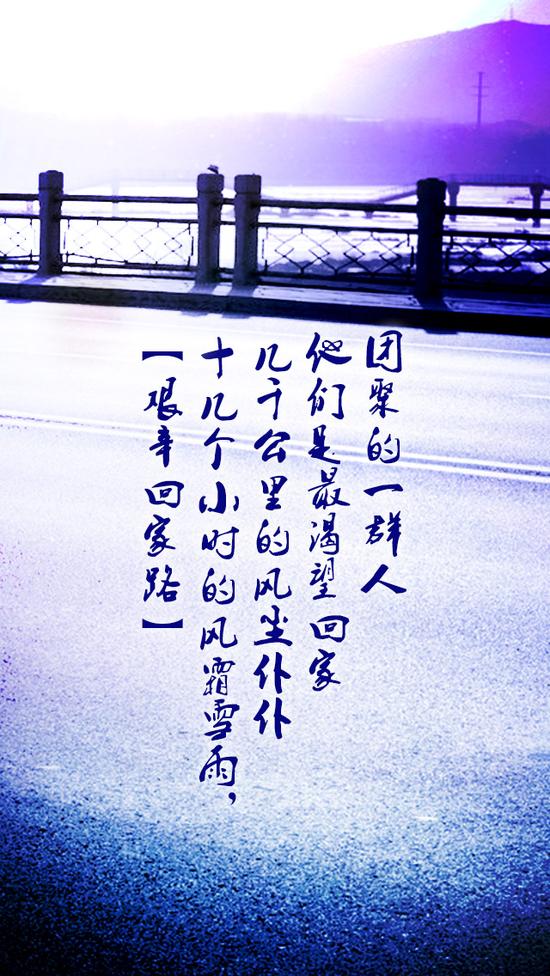 【艰辛回家路】
十几个小时的风霜雪雨，
几千公里的风尘仆仆
他们是最渴望回家
团聚的一群人